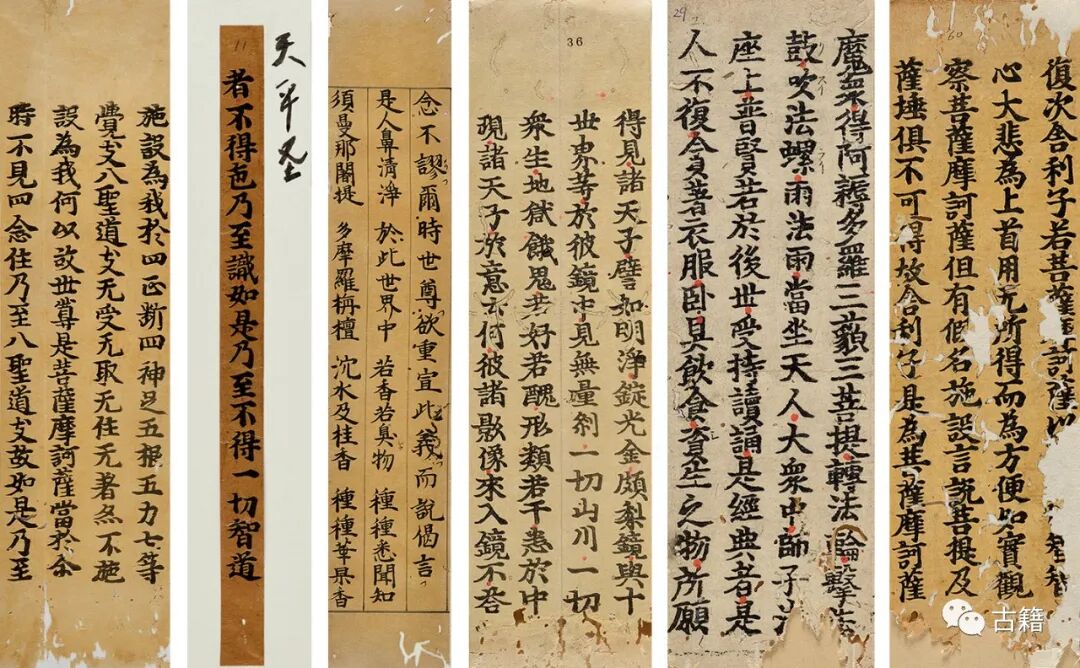 60
復次舍利子若菩薩摩訶薩以智智
心大悲為上首用无所得而為方便如實觀
察菩薩摩訶薩但有假名施設言說菩提及
薩埵俱不可得故舍利子是為菩薩摩訶薩
29
魔衆得阿耨多羅三藐三菩提轉法輪擊法
鼓吹法螺雨法雨當坐天人大衆中師子法
座上普賢若於後世受持讀誦是經典者是
人不復貪著衣服卧具飲食資生之物所願
36
得見諸天子譬如明淨錠光金頗梨鏡與十
世界等於彼鏡中見無量刹一切山川一切
衆生地獄餓鬼若好若醜形類若干悉於中
現諸天子於意云何彼諸影像來入鏡不答
念不謬爾時世尊欲重宣此義而說偈言
是人鼻清淨 於此世界中 若香若臭物 種種悉聞知
須曼那闍提 多摩羅栴檀 沉水及桂香 種種華菓香
天平
11
者不得色乃至識如是乃至不得一切智道
施設為我於四正断四神足五根五力七等
覺支八聖道支无受无取无住无著不施
設為我何以故世尊是菩薩摩訶薩當於尒
時不見四念住乃至八聖道支故如是乃至
古籍